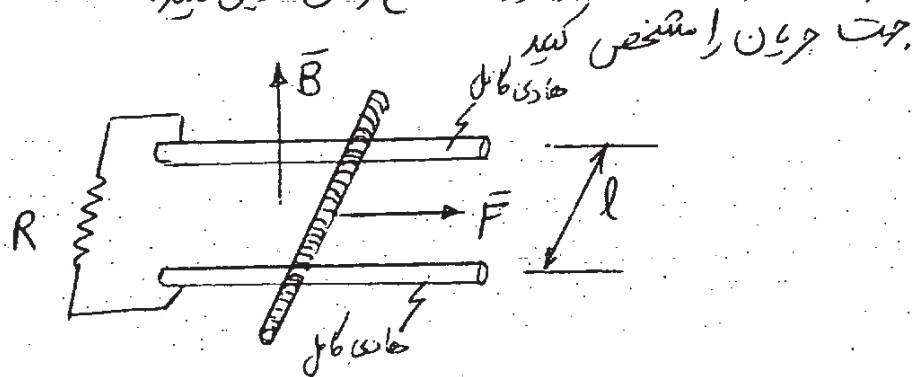 جهت جریان را مشخص کنید.
B̄
هادی کامل
R
F̄
l
هادی کامل